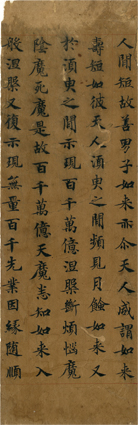 人間短故善男子如來亦尒天人咸謂如來
壽短如彼天人須臾之間頻見月蝕如來又
於須臾之間示現百千萬億涅槃斷煩惱魔
陰魔死魔是故百千萬億天魔悉知如來入
般涅槃又復示現無量百千先業因緣隨順